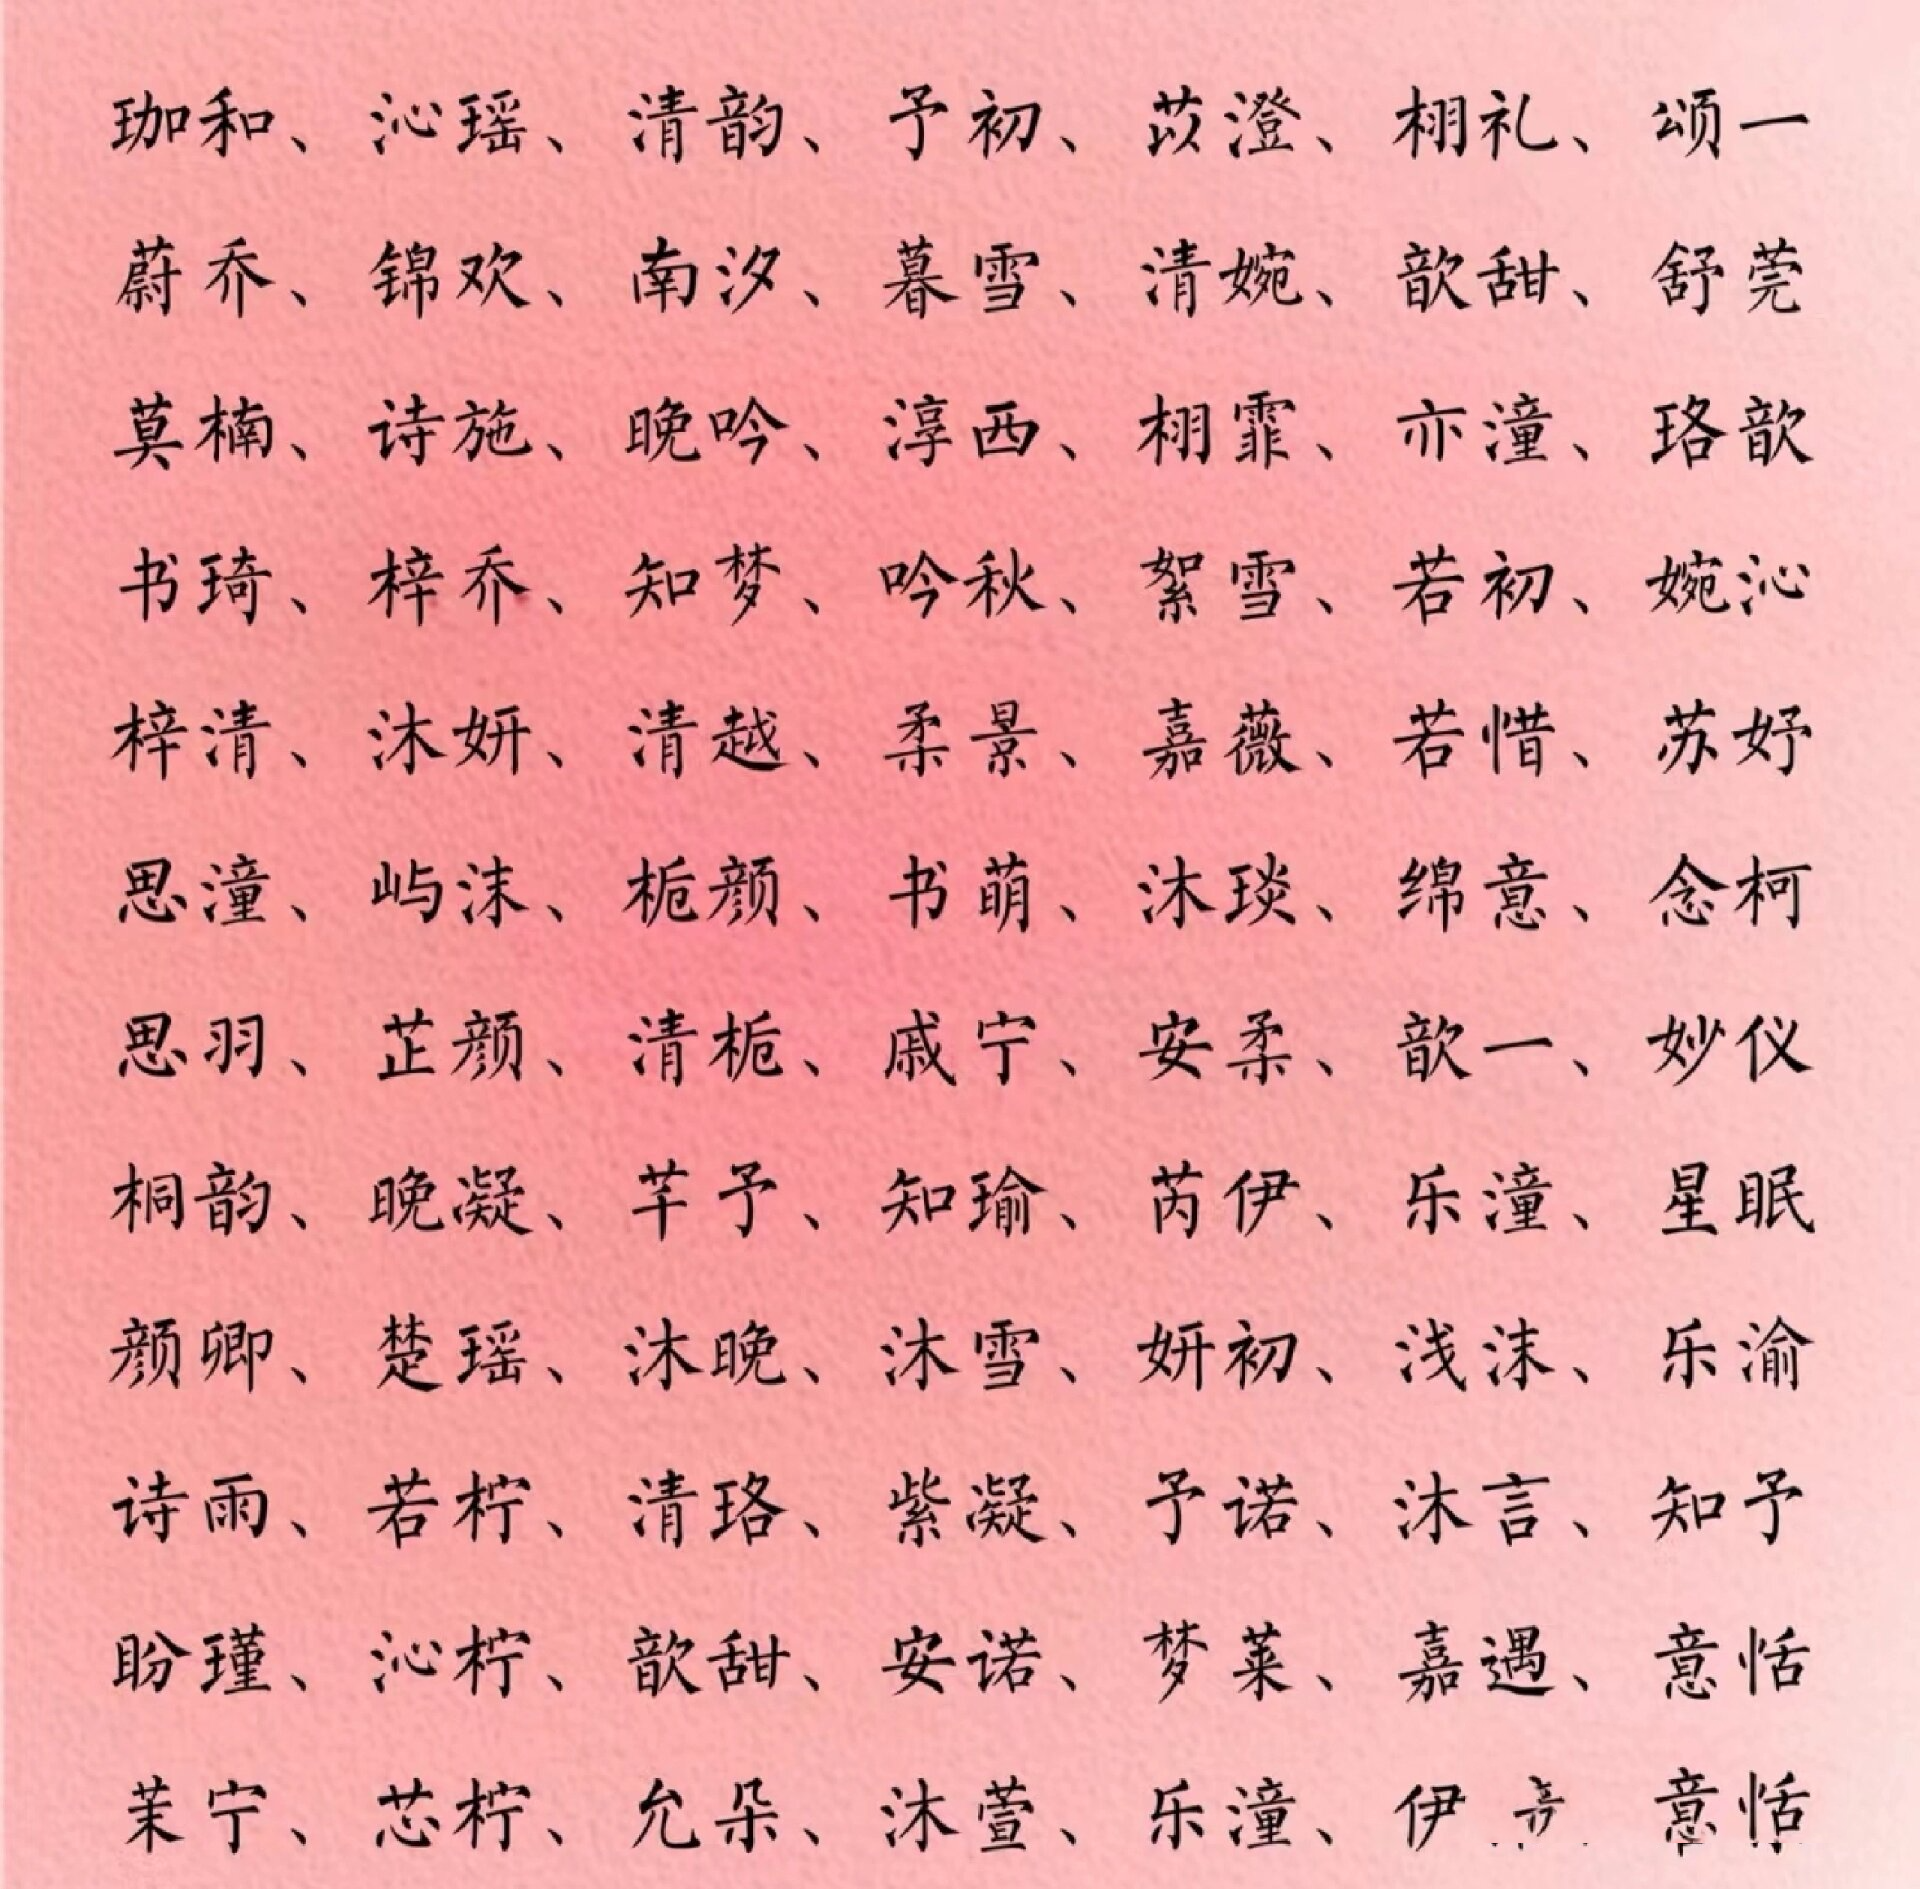 珈和、沁瑶、清韵、予初、苡澄、栩礼、颂一
蔚乔、锦欢、南汐、暮雪、清婉、歆甜、舒莞
莫楠、诗施、晚吟、淳西、栩霏、亦潼、珞歆
书琦、梓乔、知梦、吟秋、絮雪、若初、婉沁
梓清、沐妍、清越、柔景、嘉薇、若惜、苏妤
思潼、屿沫、栀颜、书萌、沐琰、绵意、念柯
思羽、芷颜、清栀、戚宁、安柔、歆一、妙仪
桐韵、晚凝、芊予、知瑜、芮伊、乐潼、星眠
颜卿、楚瑶、沐晚、沐雪、妍初、浅沫、乐渝
诗雨、若柠、清珞、紫凝、予诺、沐言、知予
盼瑾、沁柠、歆甜、安诺、梦莱、嘉遇、意恬
茉宁、芯柠、允朵、沐萱、乐潼、伊 意恬